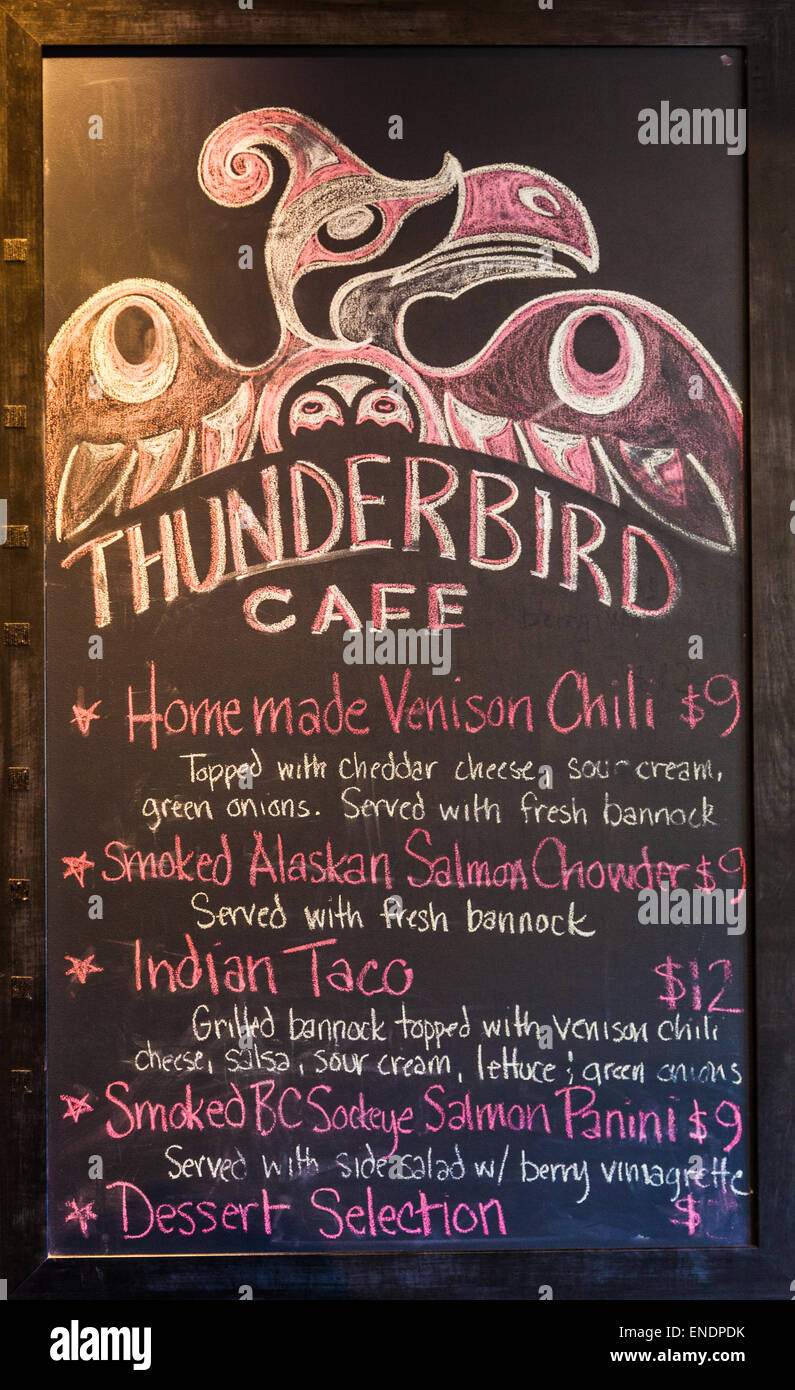 THUNDERBIRD
CAFE
Homemade Venison Chili $9
Topped with cheddar cheese, sour cream,
green onions. Served with fresh bannock
Smoked Alaskan Salmon Chowder $9
Served with fresh bannock
Indian Taco $12
Grilled bannock topped with venison chili
cheese, salsa, sour cream, lettuce ; green onions
Smoked BC Sockeye Salmon Panini $9
Served with side salad w/ berry vinagrette
Dessert Selection $
alamy stock photo
ENDPDK
www.alamy.com